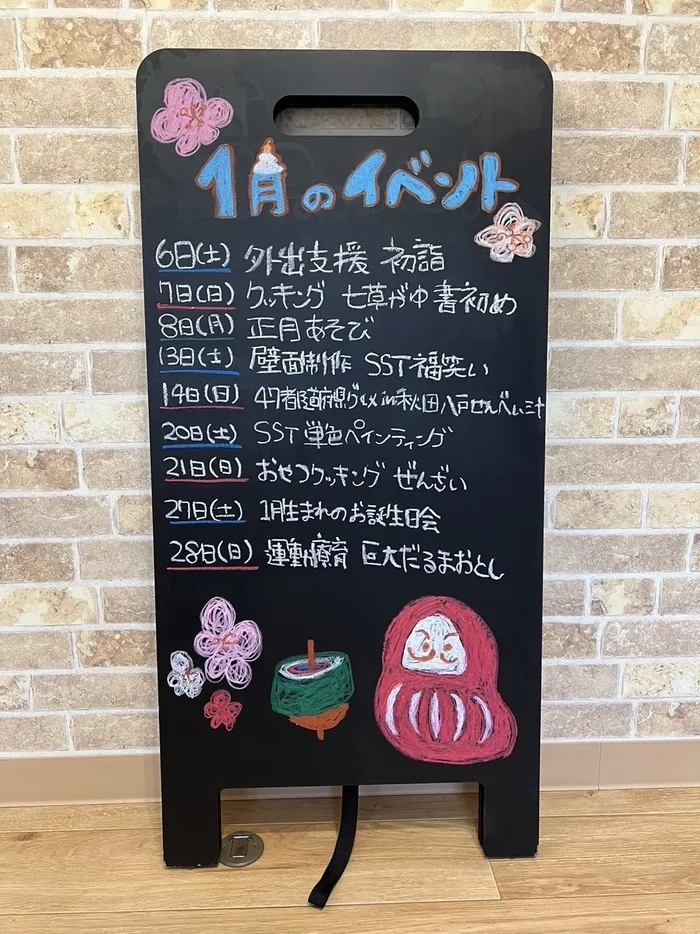 1月のイベント
6日(土) 外出支援 初詣
7日(日) クッキング 七草がゆ 書初め
8日(月) 正月あそび
13日(土) 壁面制作 SST福笑い
14日(日) 47都道府県グルメin秋田 八戸せんべい汁
20日(土) SST 単色ペインティング
21日(日) おやつクッキング ぜんざい
27日(土) 1月生まれのお誕生日会
28日(日) 運動療育 巨大だるまおとし